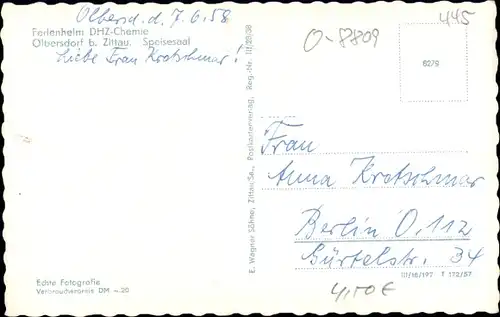 Olbersd. d. 7.6.58
Ferienheim DHZ-Chemie
Olbersdorf b. Zittau. Speisesaal
Liebe Frau Kretschmar!
445
O-8809
6279
E. Wagner Söhne, Zittau/Sa., Postkartenverlag, Reg.-Nr. III/28/38
Frau
Anna Kretschmar
Berlin O.112
Gürtelstr. 34
III/18/197 T 172/57
4,50 €
Echte Fotografie
Verbraucherpreis DM -.20